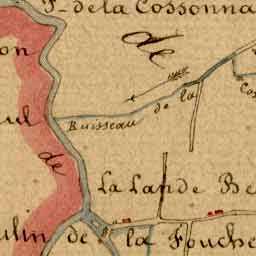 P. de la Cossonna
de
on
de la
Cos
ul
Ruisseau
de
La Lande Be
ulin de la Fouche